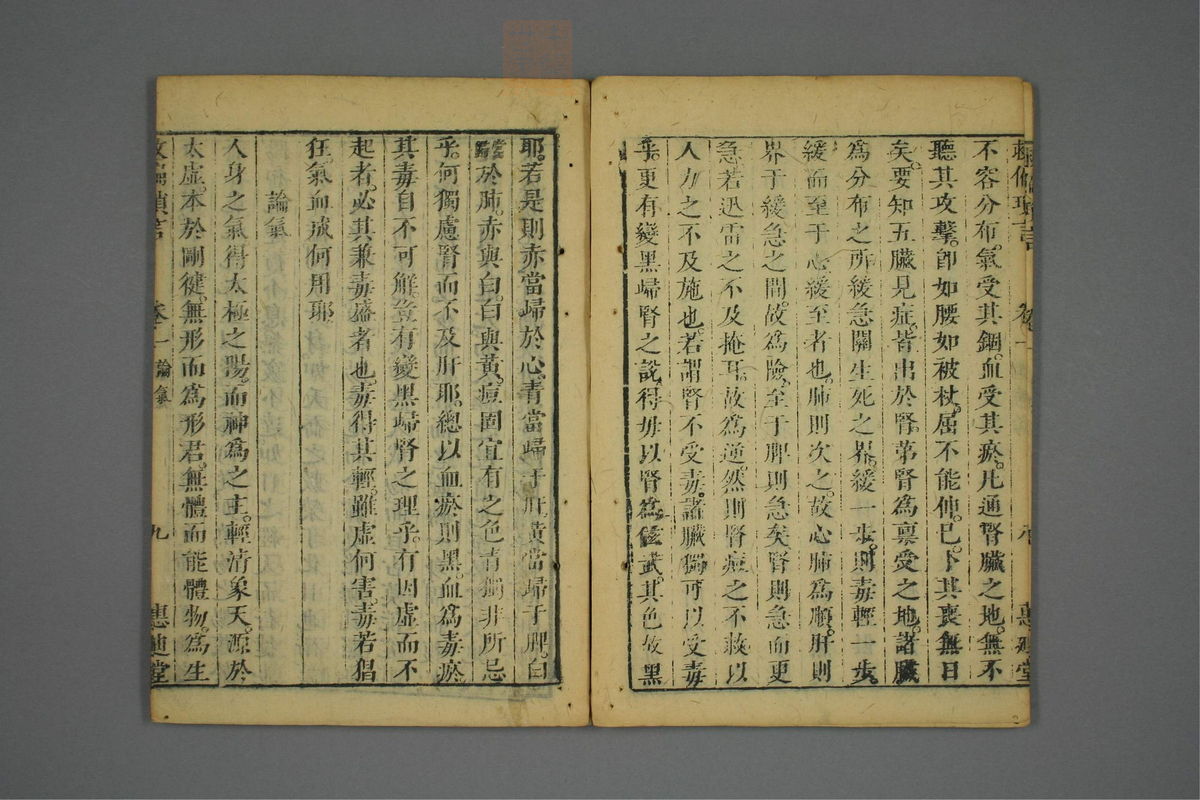 不容分布。氣受其錮。血受其瘀。凡通腎臟之地。無不
聽其攻擊。卽如腰如被杖。屈不能伸。已卜其喪無日
矣。要知五臟見症。皆出於腎。第腎爲稟受之地。諸臟
爲分布之所。緩急關生死之界。緩一步。則毒輕一步。
緩而至于心。緩至者也。肺則次之。故心肺爲順。肝則
界于緩急之間。故爲險。至于脾則急矣。腎則急而更
急。若迅雷之不及掩耳。故爲逆。然則腎症之不救。以
人力之不及施也。若謂腎不受毒。諸臟獨可以受毒
乎。更有變黑歸腎之說。得毋以腎爲武。其色故黑
耶。若是則赤當歸於心。青當歸于肝。黃當歸于脾。白
當歸於肺。赤與白。白與黃。痘固宜有之色。青獨非所忌
乎。何獨慮腎而不及肝耶。總以血瘀則黑。血爲毒瘀
其毒自不可解。豈有變黑歸腎之理乎。有因虛而不
起者。必其兼毒盛者也。毒得其輕。雖虛何害。毒若猖
狂。氣血咸何用耶
論氣
人身之氣。得太極之陽。而神爲之主。輕清象天。源於
太虛。本於剛健。無形而爲形君。無體而能體物。爲生
卷一 論氣 九